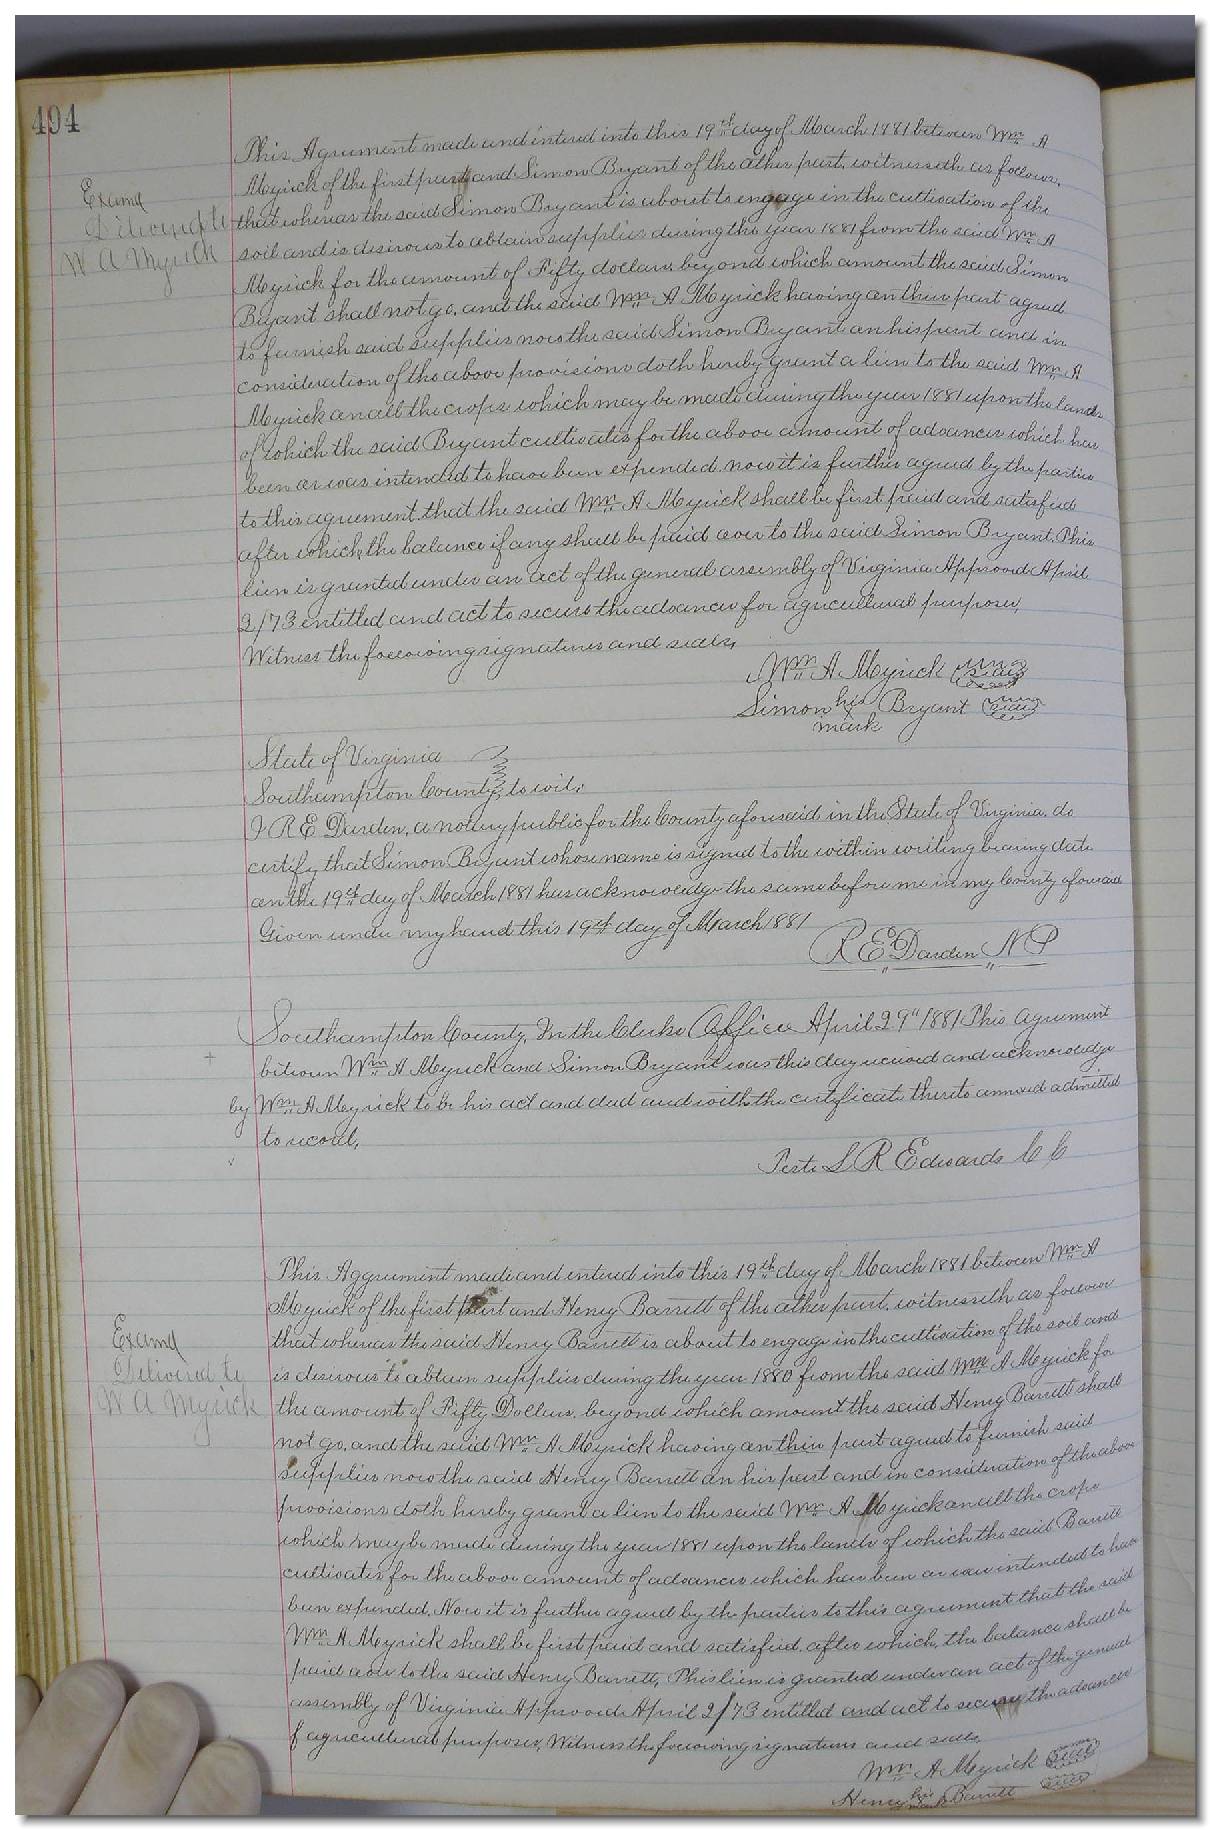 494
This Agreement made and intered into this 19th day of March 1881 between Wm A
Myrick of the first part and Simon Bryant of the other part, witnesseth as follows,
that whereas the said Simon Bryant is about to engage in the cultivation of the
soil and is desirous to obtain supplies during the year 1881 from the said Wm A
Myrick for the amount of Fifty dollars beyond which amount the said Simon
Bryant shall not go, and the said Wm A Myrick having on their part agreed
to furnish said supplies now the said Simon Bryant on his part and in
consideration of the above provisions doth hereby grant a lien to the said Wm A
Myrick on all the crops which may be made during the year 1881 upon the lands
of which the said Bryant cultivates for the above amount of advances which has
been or was intended to have been expended. now it is further agreed by the parties
to this agreement that the said Wm A Myrick shall be first paid and satisfied
after which the balance if any shall be paid over to the said Simon Bryant. This
lien is granted under an act of the general assembly of Virginia Approved April
2/73 entitled and act to secure the advances for agricultural purposes,
Witness the following signatures and seals,
Wm A Myrick seal
Simon his Bryant seal
X
mark
Examd
Delivered to
W A Myrick
State of Virginia
Southampton County, to wit,
I R E Darden, a notary public for the County aforesaid in the State of Virginia, do
certify that Simon Bryant whose name is signed to the within writing bearing date
on the 19th day of March 1881 has acknowledge the same before me in my County aforesaid
Given under my hand this 19th day of March 1881
R E Darden N P
Southampton County, In the Clerks Office April 29th 1881 This agreement
between Wm A Myrick and Simon Bryant was this day received and acknowledge
by Wm A Myrick to be his act and deed and with the certificate thereto annexed admitted
to record,
Teste L R Edwards C C
This Aggreement made and intered into this 19th day of March 1881 between Wm A
Myrick of the first part and Henry Barrett of the other part, witnesseth as follows
that whereas the said Henry Barrett is about to engage in the cultivation of the soil and
is desirous to obtain supplies during the year 1880 from the said Wm A Myrick for
the amount of Fifty Dollars, beyond which amount the said Henry Barrett shall
not go, and the said Wm A Myrick having on their part agreed to furnish said
supplies now the said Henry Barrett on his part and in consideration of the above
provisions doth hereby grant a lien to the said Wm A Myrick on all the crops
which may be made during the year 1881 upon the lands of which the said Barrett
cultivates for the above amount of advances which has been or was intended to have
been expended. Now it is further agreed by the parties to this agreement that the said
Wm A Myrick shall be first paid and satisfied, after which, the balance shall be
paid over to the said Henry Barrett, This lien is granted under an act of the general
assembly of Virginia Approved April 2/73 entitled and act to secure the advances
f agricultural purposes, Witness the following signatures and seals,
Wm A Myrick seal
Henry his Barrett seal
mark
Examd
Delivered to
W A Myrick